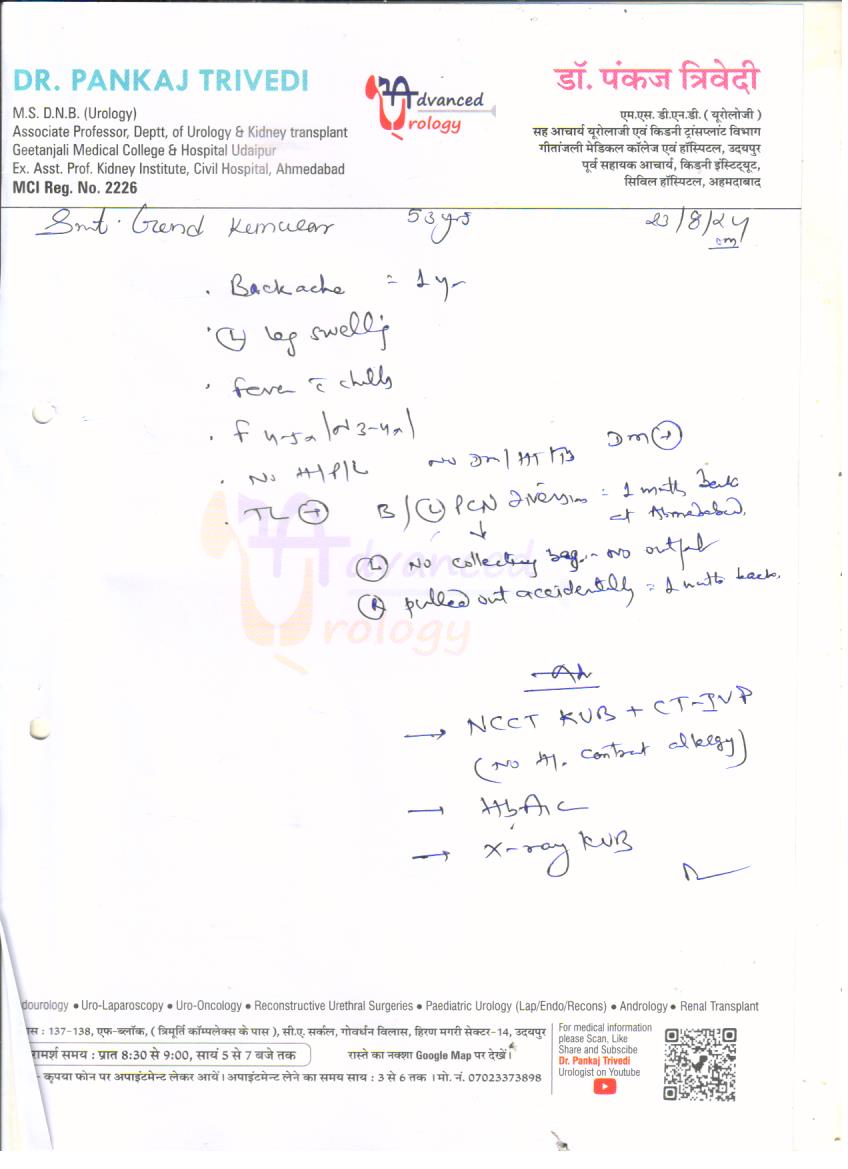 DR. PANKAJ TRIVEDI
M.S. D.N.B. (Urology)
Associate Professor, Deptt, of Urology & Kidney transplant
Geetanjali Medical College & Hospital Udaipur
Ex. Asst. Prof. Kidney Institute, Civil Hospital, Ahmedabad
MCI Reg. No. 2226
Advanced
Urology
डॉ. पंकज त्रिवेदी
एम.एस. डी.एन.डी. ( यूरोलोजी )
सह आचार्य यूरोलाजी एवं किडनी ट्रांसप्लांट विभाग
गीतांजली मेडिकल कॉलेज एवं हॉस्पिटल, उदयपुर
पूर्व सहायक आचार्य, किडनी इंस्टिट्यूट,
सिविल हॉस्पिटल, अहमदाबाद
Smt. 53 yrs 23/8/24
. Backache = 1 yr
. (L) leg swellig
. fever c̄ chills
. F 4-5x/N 3-4x/
. No H/P/L No DM/HT/TB DM (+)
. TL (+) B/(L) PCN diversion = 1 month back
at Ahmedabad.
↓
(L) No collecting bag - No output
(R) pulled out accidentally = 1 month back.
Adv
→ NCCT KUB + CT-IVP
(No H/. contrast allergy)
→ HbA1c
→ X-ray KUB
Advanced
Urology
dourology • Uro-Laparoscopy • Uro-Oncology • Reconstructive Urethral Surgeries • Paediatric Urology (Lap/Endo/Recons) • Andrology • Renal Transplant
ास : 137-138, एफ-ब्लॉक, ( त्रिमूर्ति कॉम्पलेक्स के पास ), सी.ए. सर्कल, गोवर्धन विलास, हिरण मगरी सेक्टर-14, उदयपुर
रामर्श समय : प्रात 8:30 से 9:00, सायं 5 से 7 बजे तक रास्ते का नक्शा Google Map पर देखें।
- कृपया फोन पर अपाइंटमेन्ट लेकर आयें। अपाइंटमेन्ट लेने का समय साय : 3 से 6 तक । मो. नं. 07023373898
For medical information
please Scan, Like
Share and Subscibe
Dr. Pankaj Trivedi
Urologist on Youtube